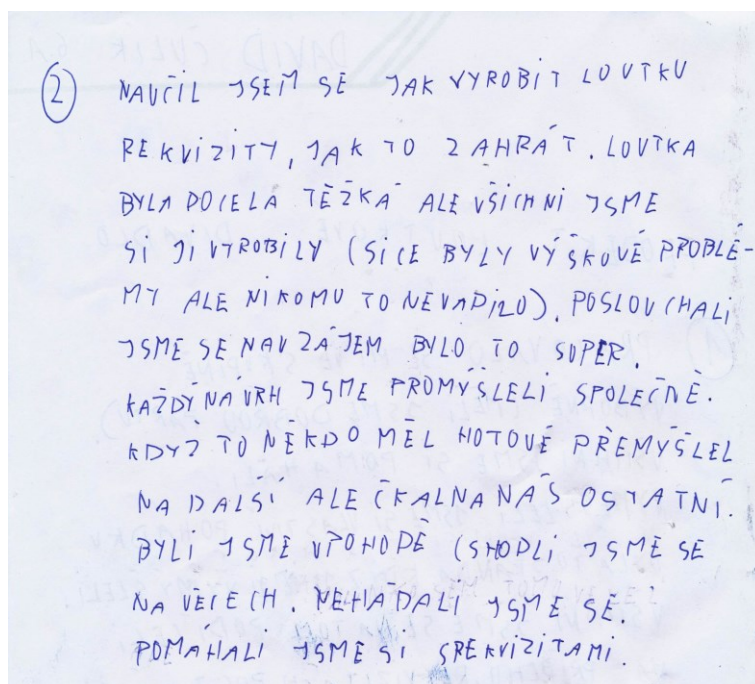 ② NAUČIL JSEM SE JAK VYROBIT LOUTKU
REKVIZITY, JAK TO ZAHRÁT. LOUTKA
BYLA DOCELA TĚŽKÁ ALE VŠICHNI JSME
SI JI VYROBILY (SICE BYLY VÝŠKOVÉ PROBLÉ-
MY ALE NIKOMU TO NEVADILO). POSLOUCHALI
JSME SE NAVZÁJEM BYLO TO SUPER.
KAŽDÝ NÁVRH JSME PROMÝŠLELI SPOLEČNĚ.
KDYŽ TO NĚKDO MĚL HOTOVÉ PŘEMÝŠLEL
NA DALŠÍ ALE ČKAL NA NÁS OSTATNÍ.
BYLI JSME VPOHODĚ (SHODLI JSME SE
NA VĚCECH. NEHÁDALI JSME SE.
POMÁHALI JSME SI SREKVIZITAMI.